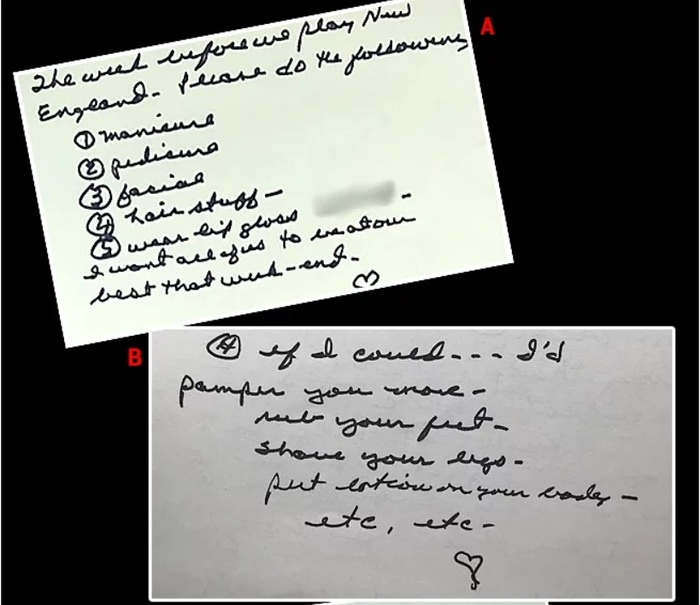 The week before we play New
England - Please do the following
① manicure
② pedicure
③ facial
④ hair stuff -
⑤ wear lip gloss -
I want all of us to be at our
best that week-end -
A
B
④ if I could --- I'd
pamper you more -
rub your feet -
shave your legs -
put lotion on your body -
etc, etc -